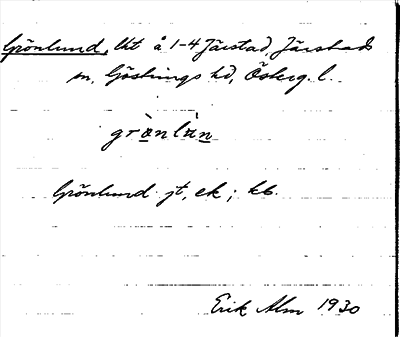 Grönlund, lht å 1-4 Järstad, Järstads
sn, Göstrings hd, Österg. l.
grònlùn
Grönlund jt, ek; kb.
Erik Alm 1930